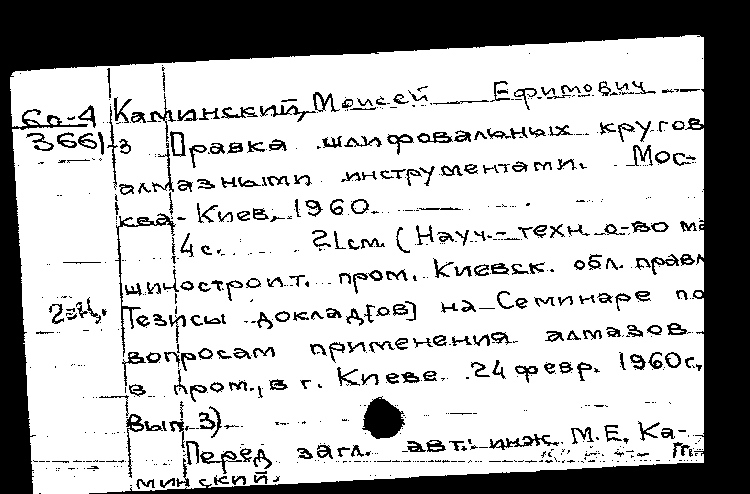 бо-4 Каминский, Моисей Ефимович
3661-3 Правка шлифовальных кругов
алмазными инструментами. Мос-
ква-Киев, 1960.
4 с. 21 см. (Науч.-техн. о-во ма
шиностроит. пром. Киевск. обл. правл
Тезисы доклад[ов] на Семинаре по
вопросам применения алмазов
в пром., в г. Киеве 24 февр. 1960 г.,
Вып. 3).
Перед загл. авт.: инж. М.Е. Ка-
минский.